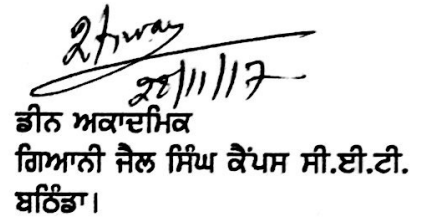 28/11/17
ਡੀਨ ਅਕਾਦਮਿਕ
ਗਿਆਨੀ ਜੈਲ ਸਿੰਘ ਕੈਂਪਸ ਸੀ.ਈ.ਟੀ.
ਬਠਿੰਡਾ।